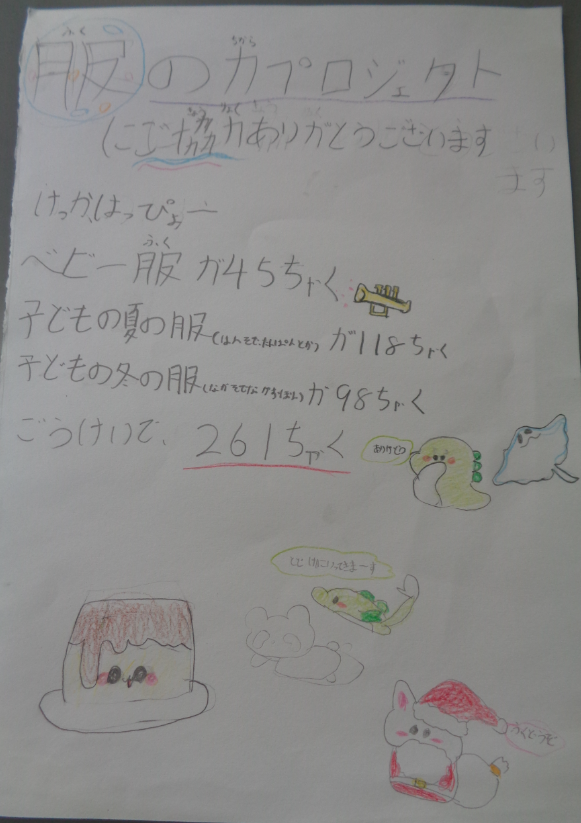 服のカプロジェクト
ふく
ちから
にご協力ありがとうございます
きょう
りょく
います
けっかはっぴょー
ベビー服が45ちゃく
ふく
子どもの夏の服(はんそで、たんぱんとか)が118ちゃく
子どもの冬の服(ながそでながずぼん)が98ちゃく
ごうけいで、261ちゃく
ありがとう
ふくどうぞ